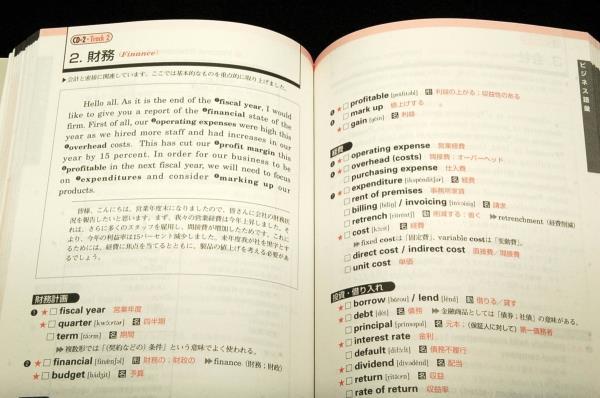 CD-2・Track 2
2. 財務 (Finance)
▶会計と密接に関連しています。ここでは基本的なものを重点的に取り上げました。
Hello all. As it is the end of the ❶fiscal year, I would
like to give you a report of the ❷financial state of the
firm. First of all, our ❸operating expenses were high this
year as we hired more staff and had increases in our
❹overhead costs. This has cut our ❺profit margin this
year by 15 percent. In order for our business to be
❻profitable in the next fiscal year, we will need to focus
on ❼expenditures and consider ❽marking up our
products.
皆様、こんにちは。営業年度末になりましたので、皆さんに会社の財務状
況を報告したいと思います。まず、我々の営業経費は今年上昇しました。そ
れは、さらに多くのスタッフを雇用し、間接費が増加したためです。これに
より、今年の利益率は15パーセント減少しました。来年度我が社を黒字とす
るためには、経費に焦点を当てるとともに、製品の値上げを考える必要があ
るでしょう。
財務計画
❶★□ fiscal year 営業年度
★□ quarter [kwɔ́ːrtər] 名 四半期
□ term [tə́ːrm] 名 期間
▶▶ 複数形では「(契約などの) 条件」という意味でよく使われる。
❷★□ financial [finǽnʃəl] 形 財務の；財政の ▶▶ finance (財務；財政)
★□ budget [bʌ́dʒit] 名 予算
ビジネス語彙
□ profitable [práfitəbl] 形 利益の上がる；収益性のある
□ mark up 値上げする
★□ gain [géin] 名 利益
経費
□ operating expense 営業経費
□ overhead (costs) 間接費；オーバーヘッド
□ purchasing expense 仕入費
□ expenditure [ikspénditʃər] 名 経費
□ rent of premises 事務所家賃
□ billing [bíliŋ] / invoicing [ínvɔisiŋ] 名 請求
□ retrench [ritréntʃ] 動 削減する；省く ▶▶ retrenchment (経費削減)
★□ cost [kɔ́ːst] 名 経費
▶▶ fixed cost は「固定費」、variable cost は「変動費」。
□ direct cost / indirect cost 直接費／間接費
□ unit cost 単価
投資・借り入れ
★□ borrow [bárou] / lend [lénd] 動 借りる／貸す
★□ debt [dét] 名 債務 ▶▶ 金融商品としては「債券；社債」の意味がある。
□ principal [prínsəpəl] 名 元本；(保証人に対して) 第一債務者
★□ interest rate 金利
□ default [difɔ́ːlt] 名 債務不履行
□ dividend [dívədènd] 名 配当
★□ return [ritə́ːrn] 名 収益
□ rate of return 収益率